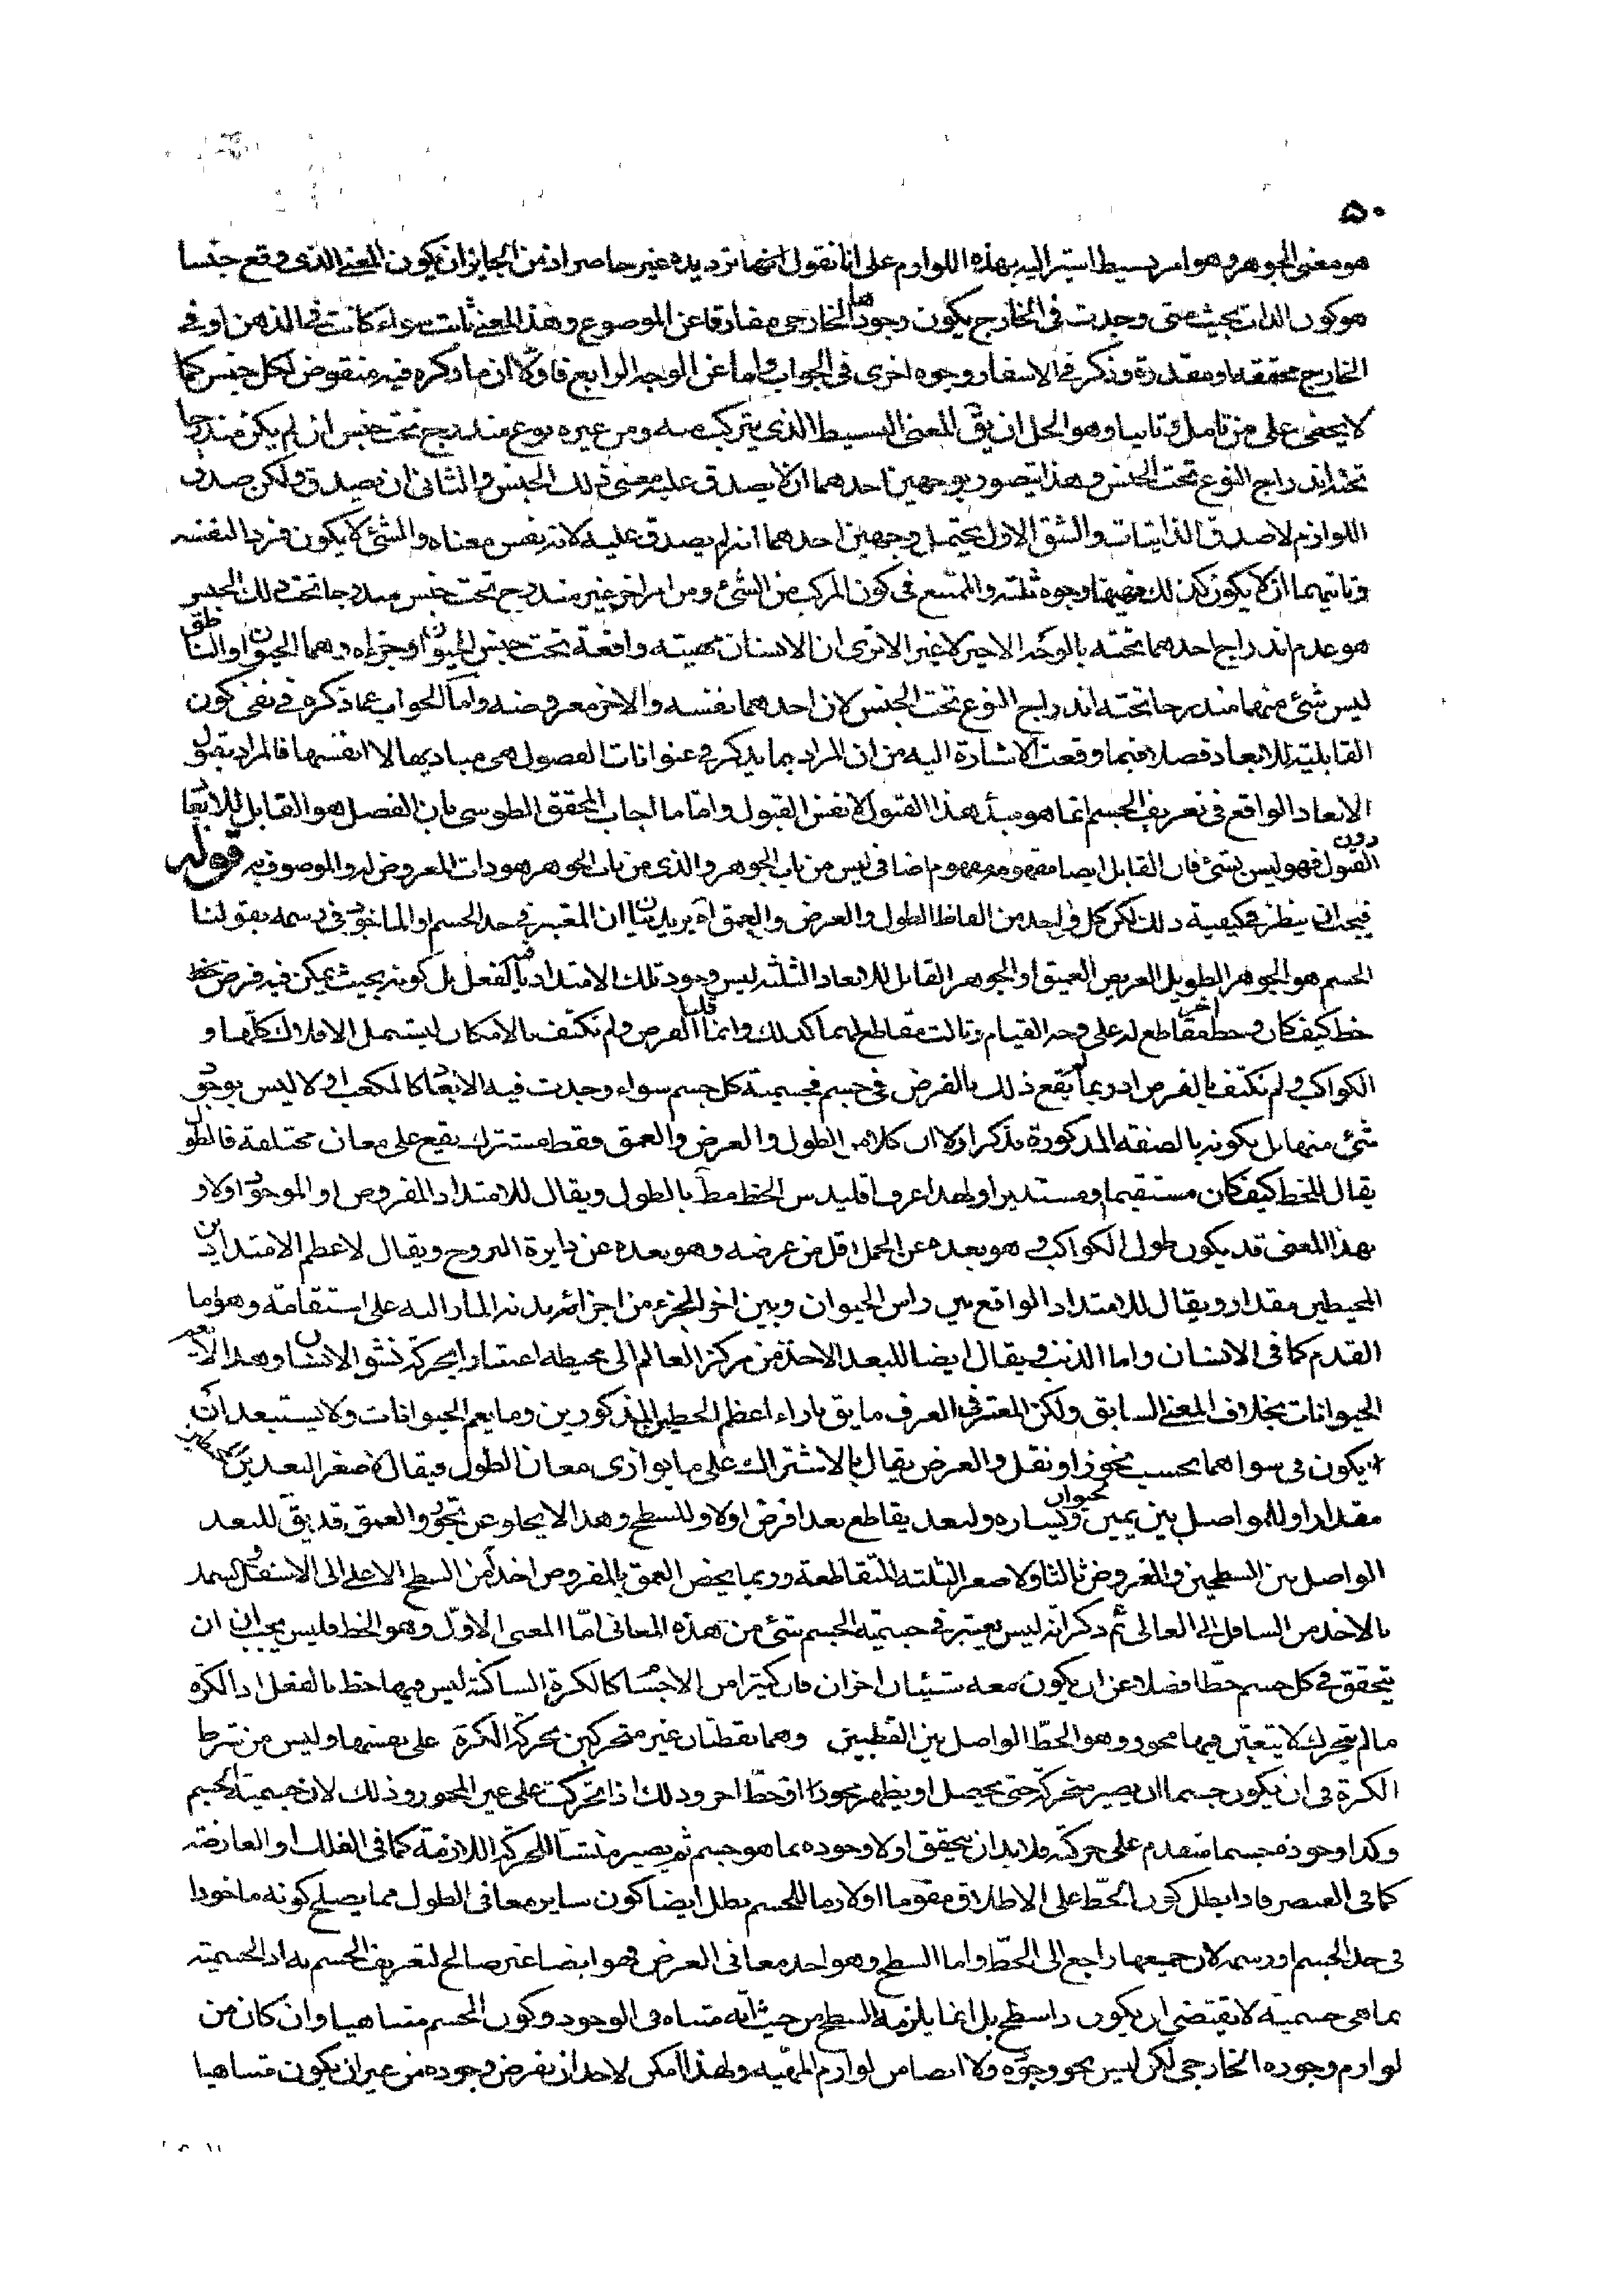 ٥٠
هو معنى الجوهر و هو امر بسيط اشير اليه بهذه اللوازم على انا نقول انها ترديده غير حاصر اذ من الجايز ان يكون المعنى الذى وقع جنسا
هو كون الذات بحيث متى وجدت فى الخارج يكون وجودها الخارجى مفارقا عن الموضوع و هذا المعنى ثابت سواء كانت فى الذهن او فى
الخارج محققة او مقدرة و ذكر فى الاسفار وجوه اخرى فى الجواب و اما عن الوجه الرابع فاولا ان ما ذكره فيه منقوض لكل جنس كما
لا يخفى على من تامل و ثانيا و هو الحل ان يق المعنى البسيط الذى يتركب منه و من غيره نوع مندرج تحت جنس ان لم يكن مندرجا
تحته اندراج النوع تحت الجنس و هذا يتصور بوجهين احدهما ان لا يصدق عليه معنى ذلك الجنس و الثانى ان يصدق و لكن صدق
اللوازم لا صدق الذاتيات و الشق الاول يحتمل وجهين احدهما انه لم يصدق عليه لانه نفس معناه و الشئ لا يكون فردا لنفسه
و ثانيهما ان لا يكون كذلك ففيها وجوه ثلثه و الممتنع فى كون المركب من الشئ و من امر اخر غير مندرج تحت جنس مندرجا تحت ذلك الجنس
هو عدم اندراج احدهما تحته بالوجه الاخير لا غير الا ترى ان الانسان مهيته واقعة تحت جنس الحيوان و جزءاه و هما الحيوان و الناطق
ليس شئ منهما مندرجا تحته اندراج النوع تحت الجنس لان احدهما نفسه و الاخر معروضه و اما الجواب عما ذكره فى نفى كون
القابلية للابعاد فصلا فبما وقعت الاشارة اليه من ان المراد بما يذكر فى عنوانات الفصول هى مباديها لا انفسها فالمراد بقبول
الابعاد الواقع فى تعريف الجسم انما هو مبدأ هذا القبول لا نفس القبول و اما ما اجاب المحقق الطوسى بان الفصل هو القابل للابعاد
دون القبول فهو ليس بشئ فان القابل ايضا مفهومه مفهوم اضافى ليس من باب الجوهر و الذى من باب الجوهر هو ذات المعروض له و الموصوف به قوله
فيجب ان ينظر فى كيفية ذلك لكن كل واحد من الفاظ الطول و العرض و العمق آه يريد بيان ان المعتبر فى حد الجسم او الماخوذ فى رسمه بقولنا
الجسم هو الجوهر الطويل العريض العميق او الجوهر القابل للابعاد الثلثه ليس وجود تلك الامتدادات فيه بالفعل بل كونه بحيث يمكن فيه فرض
خط كيف كان و خط اخر مقاطع له على وجه القيام و ثالث مقاطع لهما كذلك و انما قلنا الفرض و لم نكتف بالامكان ليشمل الافلاك كلها و
الكواكب و لم نكتف بالفرض اذ ربما لم يقع ذلك بالفرض فى جسم فجسمية كل جسم سواء وجدت فيه الابعاد كالمكعب او لا ليس بوجود
شئ منها بل بكونه بالصفة المذكورة فذكر اولا ان كلا من الطول و العرض و العمق لفظ مشترك يقع على معان مختلفة فالطول
يقال للخط كيف كان مستقيما و مستديرا و لهذا عرف اقليدس الخط مط بالطول و يقال للامتداد المفروض او الموجود اولا و
بهذا المعنى قد يكون طول الكواكب و هو بعده عن الحمل اقل من عرضه و هو بعده عن دايرة البروج و يقال لاعظم الامتدادين
المحيطين مقدارا و يقال للامتداد الواقع بين راس الحيوان و بين اخر الجزء من اجزاء بدنه المار اليه على استقامة و هو اما
القدم كما فى الانسان و اما الذنب و يقال ايضا للبعد الاخذ من مركز العالم الى محيطه اعتبارا بحركة نشو الانسان و هذا الا يعم
الحيوانات بخلاف المعنى السابق و لكن المعتبر فى العرف ما يق بازاء اعظم الخطين المذكورين و ما يعم الحيوانات و لا يستبعد ان
يكون فى سواهما بحسب تجوز او نقل و العرض يقال بالاشتراك على ما يوازى معان الطول فيقال لاصغر البعدين
مقدارا و للمواصل بين يمين حيوان و يساره و لبعد يقاطع بعدا فرض اولا و للسطح و هذا لا يخلو عن تجوز و العمق قد يق للبعد
الواصل بين السطحين و المفروض ثالثا و لاصغر الثلثه المتقاطعة و ربما يخص العمق بالمفروض اخذا من السطح الاعلى الى الاسفل و السمك
بالاخذ من السافل الى العالى ثم ذكر انه ليس يعتبر فى جسمية الجسم شئ من هذه المعانى اما المعنى الاول و هو الخط فليس يجب ان
يتحقق فى كل جسم خطا فضلا عن ان يكون معه شيئان اخران فان كثيرا من الاجسام كالكرة الساكنة ليس فيها خط بالفعل اذ الكرة
ما لم يتحرك لا يتعين فيها محور و هو الخط الواصل بين القطبين و هما نقطتان غير متحركين بحركة الكرة على نفسها و ليس من شرط
الكرة فى ان يكون جسما ان يصير متحركة حتى يحصل او يظهر محورا او خط اخر و ذلك اذا تحركت على غير المحور و ذلك لان جسمية الجسم
و كذا وجوده جسما متقدم على حركة فلا بد ان يتحقق اولا وجوده بما هو جسم ثم يصير منشأ للحركة اللازمة كما فى الفلك او العارضة
كما فى العنصر فاذا بطل كون الخط على الاطلاق مقوما او لازما للجسم بطل ايضا كون ساير معانى الطول مما يصلح كونه ماخوذا
فى حد الجسم او رسمه لان جميعها راجع الى الخط و اما السطح و هو احد معانى العرض فهو ايضا غير صالح لتعريف الجسم به اذ الجسمية
بما هى جسمية لا تقتضى ان يكون ذا سطح بل انما يلزمه السطح من حيث انه متناه فى الوجود و كون الجسم متناهيا و ان كان من
لوازم وجوده الخارجى لكن ليس نحو وجوده و لا ايضا من لوازم المهية و لهذا امكن لاحد ان يفرض وجوده من غير ان يكون متناهيا